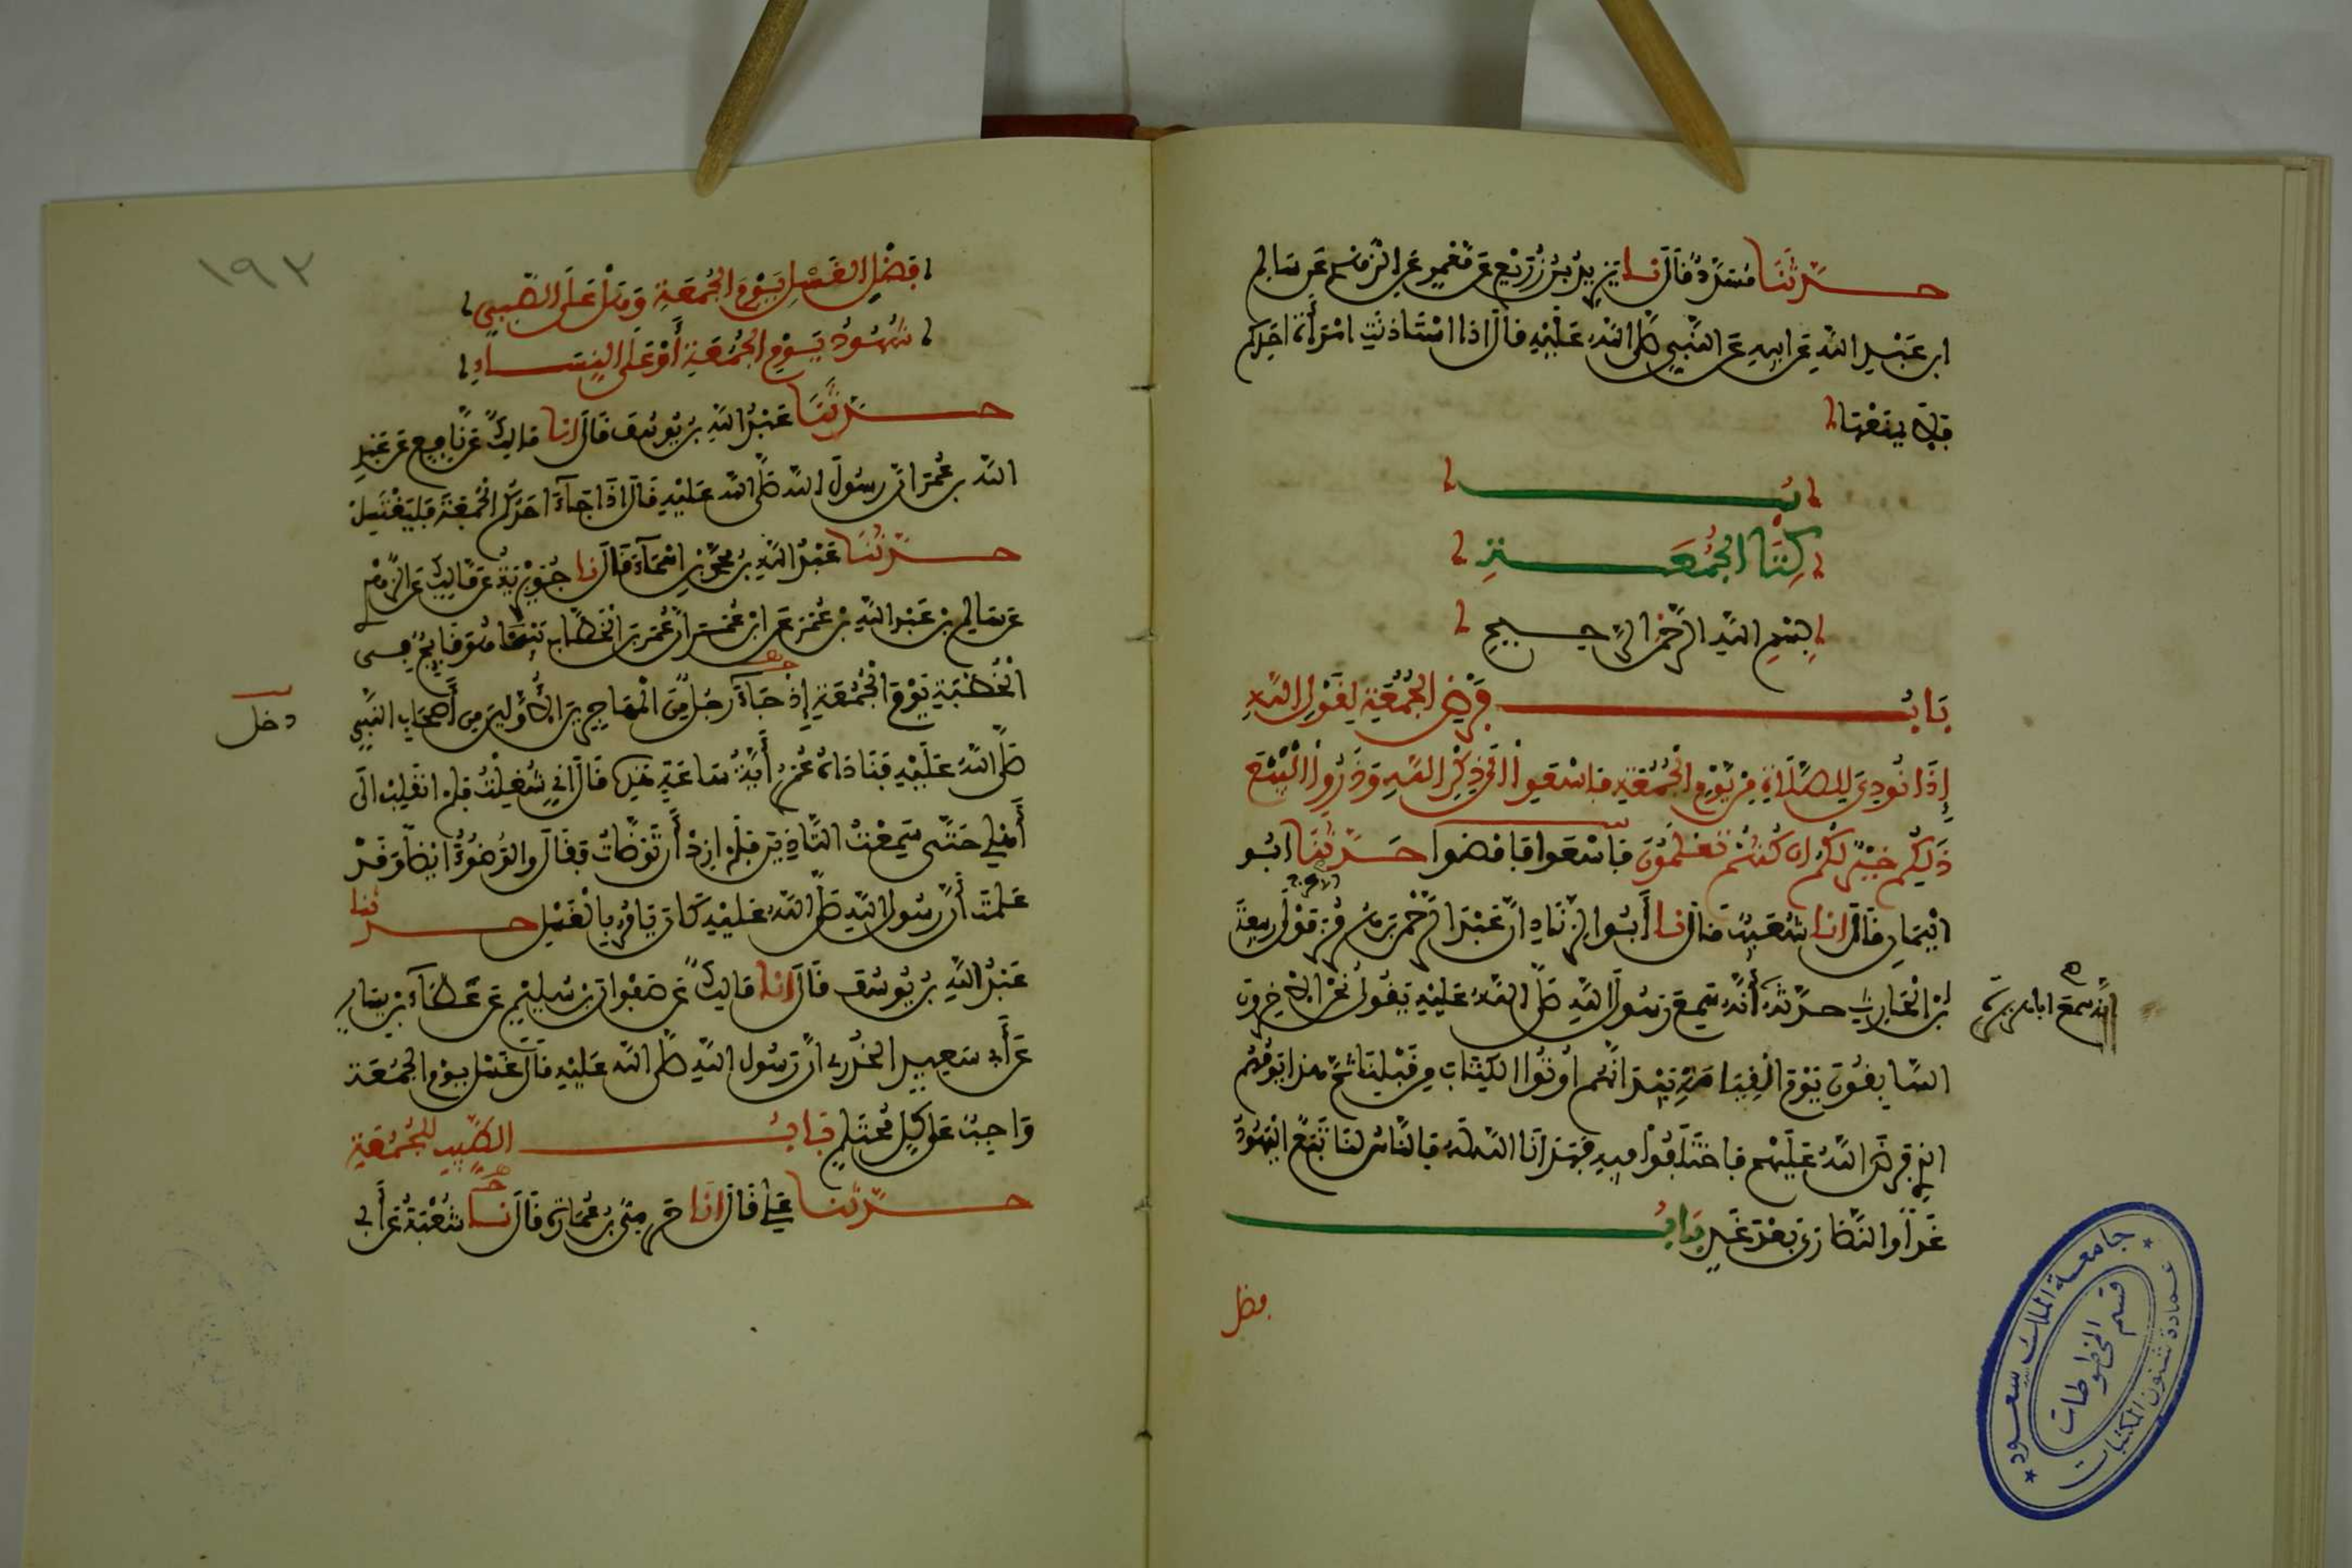 حدثنا مسدد قال نا يزيد بن زريع عن معمر عن الزهري عن سالم
ابن عبد الله عن ابيه عن النبي صلى الله عليه قال اذا استاذنت امراة احدكم
فلا يمنعها
كتاب الجمعة
بسم الله الرحمن الرحيم
باب فرض الجمعة لقول الله
إذا نودي للصلاة من يوم الجمعة فاسعوا الى ذكر الله وذروا البيع
ذلكم خير لكم ان كنتم تعلمون فاسعوا فامضوا حدثنا ابو
اليمان قال انا شعيب قال نا أبو الزناد ان عبد الرحمن بن هرمز مولى ربيعة
بن الحارث حدثه أنه سمع رسول الله صلى الله عليه يقول نحن الاخرون
انه سمع ابا هريرة
السابقون يوم القيامة بيد انهم اوتوا الكتاب من قبلنا ثم هذا يومهم
الذي فرض الله عليهم فاختلفوا فيه فهدانا الله له فالناس لنا تبع اليهود
غدا والنصارى بعد غد باب
فضل
١٩٢
فضل الغسل يوم الجمعة وهل على الصبي
شهود يوم الجمعة أو على النساء
حدثنا عبد الله بن يوسف قال انا مالك عن نافع عن عبد
الله بن عمر ان رسول الله صلى الله عليه قال اذا جاء احدكم الجمعة فليغتسل
حدثنا عبد الله بن محمد بن اسماء قال نا جويرية عن مالك عن الزهري
عن سالم بن عبد الله بن عمر عن ابن عمر ان عمر بن الخطاب بينما هو قايم في
الخطبة يوم الجمعة إذ جاء رجل من المهاجرين الأولين من أصحاب النبي
دخل
صلى الله عليه فناداه عمر أية ساعة هذه قال اني شغلت فلم انقلب الى
أهلي حتى سمعت التاذين فلم ازد أن توضات فقال والوضوء ايضا وقد
علمت أن رسول الله صلى الله عليه كان يامر بالغسل حدثنا
عبد الله بن يوسف قال انا مالك عن صفوان بن سليم عن عطاء بن يسار
عن أبي سعيد الخدري ان رسول الله صلى الله عليه قال غسل يوم الجمعة
واجب على كل محتلم باب الطيب للجمعة
حدثنا علي قال انا حرمي بن عمارة قال نا شعبة عن أبي
جامعة الملك سعود
عمادة شئون المكتبات
قسم المخطوطات